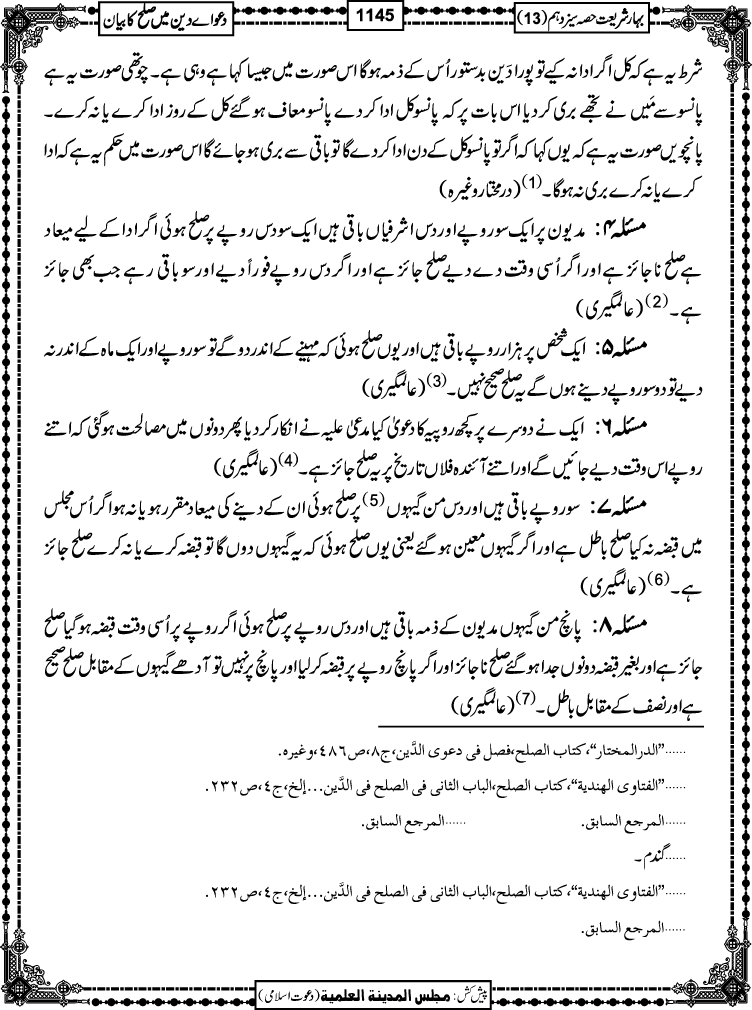 بہارِ شریعت حصہ سیزدہم (13)
1145
دعوائے دین میں صلح کا بیان
شرط یہ ہے کہ کل اگر ادا نہ کیے تو پورا دَین بدستور اُس کے ذمہ ہوگا اس صورت میں جیسا کہا ہے وہی ہے۔ چوتھی صورت یہ ہے
پانسو سے مَیں نے تجھے بری کر دیا اس بات پر کہ پانسو کل ادا کر دے پانسو معاف ہو گئے کل کے روز ادا کرے یا نہ کرے۔
پانچویں صورت یہ ہے کہ یوں کہا کہ اگر تو پانسو کل کے دن ادا کر دے گا تو باقی سے بری ہو جائے گا اس صورت میں حکم یہ ہے کہ ادا
کرے یا نہ کرے بری نہ ہوگا۔(1) (درمختار وغیرہ)
مسئلہ ۴: مدیون پر ایک سو روپے اور دس اشرفیاں باقی ہیں ایک سو دس روپے پر صلح ہوئی اگر ادا کے لیے میعاد
ہے صلح ناجائز ہے اور اگر اُسی وقت دے دیے صلح جائز ہے اور اگر دس روپے فوراً دیے اور سو باقی رہے جب بھی جائز
ہے۔(2) (عالمگیری)
مسئلہ ۵: ایک شخص پر ہزار روپے باقی ہیں اور یوں صلح ہوئی کہ مہینے کے اندر دو گے تو سو روپے اور ایک ماہ کے اندر نہ
دیے تو دو سو روپے دینے ہوں گے یہ صلح صحیح نہیں۔(3) (عالمگیری)
مسئلہ ۶: ایک نے دوسرے پر کچھ روپیہ کا دعویٰ کیا مدعیٰ علیہ نے انکار کر دیا پھر دونوں میں مصالحت ہوگئی کہ اتنے
روپے اس وقت دیے جائیں گے اور اتنے آئندہ فلاں تاریخ پر یہ صلح جائز ہے۔(4) (عالمگیری)
مسئلہ ۷: سو روپے باقی ہیں اور دس من گیہوں(5) پر صلح ہوئی ان کے دینے کی میعاد مقرر ہو یا نہ ہو اگر اُس مجلس
میں قبضہ نہ کیا صلح باطل ہے اور اگر گیہوں معین ہو گئے یعنی یوں صلح ہوئی کہ یہ گیہوں دوں گا تو قبضہ کرے یا نہ کرے صلح جائز
ہے۔(6) (عالمگیری)
مسئلہ ۸: پانچ من گیہوں مدیون کے ذمہ باقی ہیں اور دس روپے پر صلح ہوئی اگر روپے پر اُسی وقت قبضہ ہوگیا صلح
جائز ہے اور بغیر قبضہ دونوں جدا ہو گئے صلح ناجائز اور اگر پانچ روپے پر قبضہ کرلیا اور پانچ پر نہیں تو آدھے گیہوں کے مقابل صلح صحیح
ہے اور نصف کے مقابل باطل۔(7) (عالمگیری)
......”الدرالمختار“،کتاب الصلح،فصل فی دعوی الدَّین،ج۸،ص۴۸۶،وغیرہ.
......”الفتاوی الهندية“،کتاب الصلح،الباب الثانی فی الصلح فی الدَّین...إلخ،ج٤،ص۲۳۲.
......المرجع السابق. ......المرجع السابق.
......گندم۔
......”الفتاوی الهندية“،کتاب الصلح،الباب الثانی فی الصلح فی الدَّین...إلخ،ج٤،ص۲۳۲.
......المرجع السابق.
پیش کش: مجلس المدينة العلمية (دعوت اسلامی)